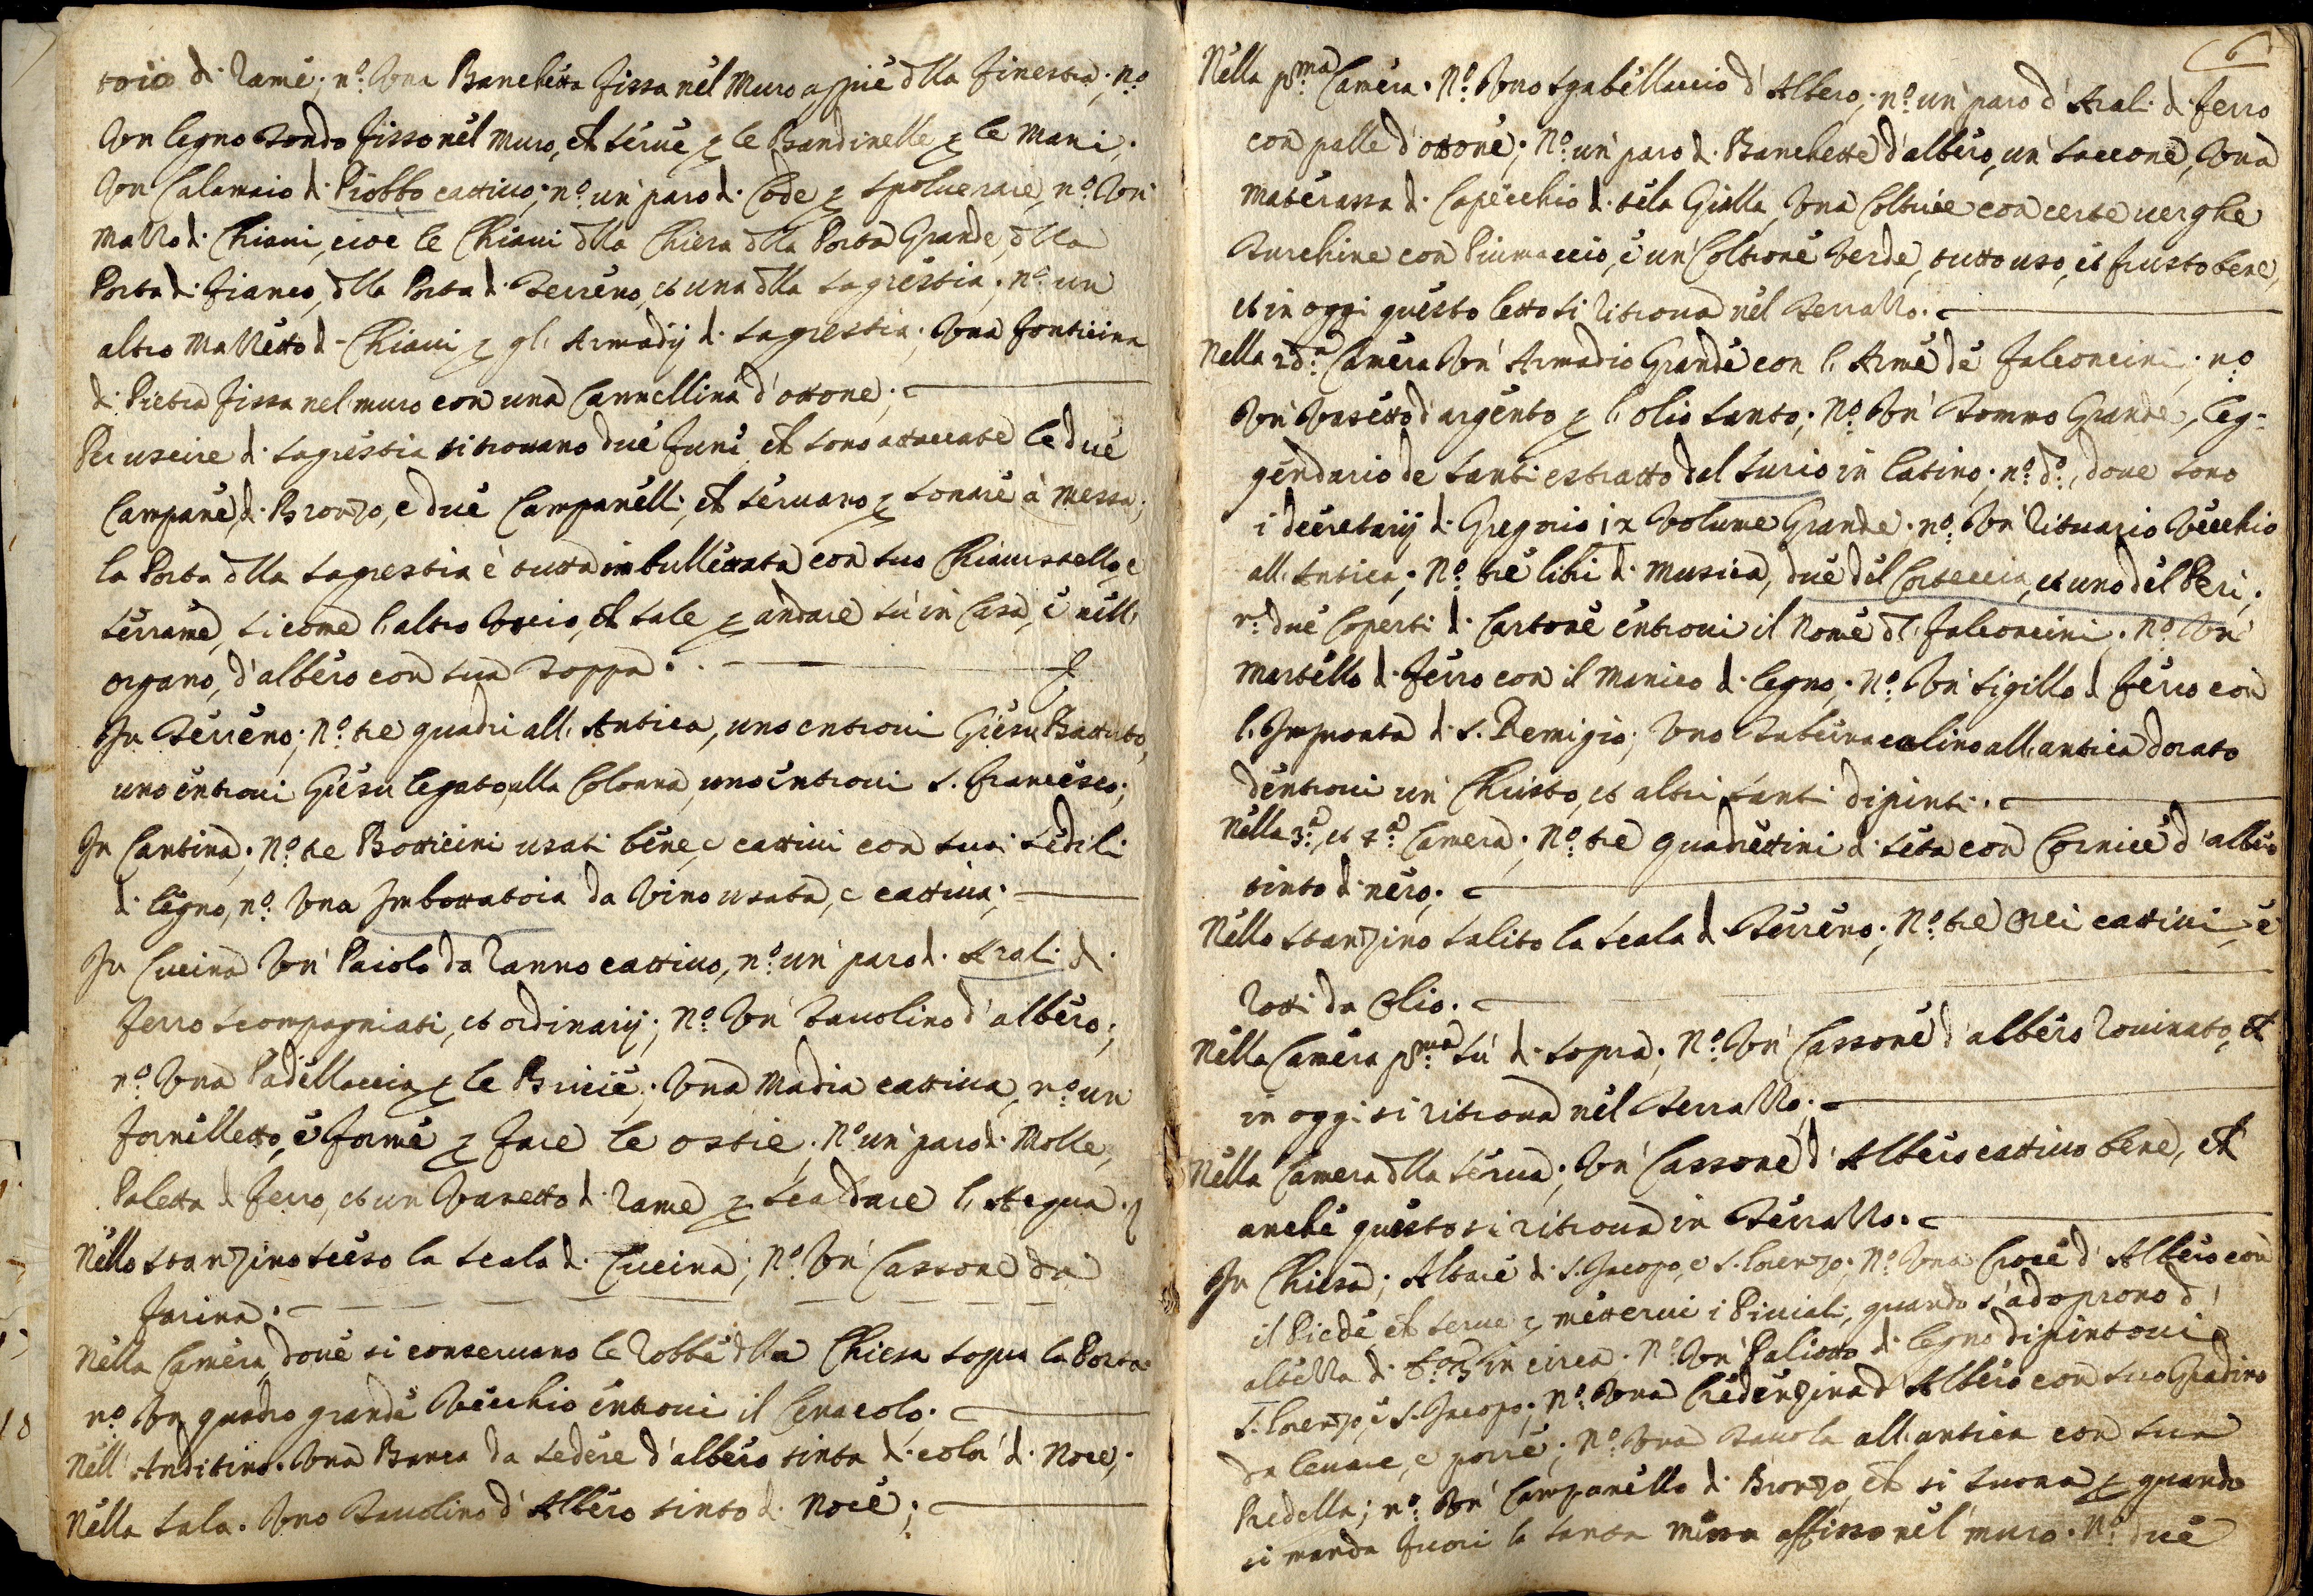 toio di Rame; n.º Una Banchetta fissa nel Muro appiè dlla finestra; n.º
Un legno tondo fisso nel muro, ch serue p le Bandinelle p le Mani;
Un Calamaio di Piobbo cattiuo; n.º un paro di Code p spoluerare, n.º Un
Mazzo di Chiaui, cioè le Chiaui dlla Chiesa dlla Porta Grande, dlla
Porta di fianco, dlla Porta di Terreno, et una dlla Sagrestia; n.º un
altro Mazzetto di Chiaui p gli Armadij di Sagrestia; Una fonticina
di Pietra fissa nel muro con una Cannellina d'ottone;
Per uscire di Sagrestia si trouano due funi ch sono attaccate le due
Campane di Bronzo, e due Campanelli, ch seruano p sonare à Messa;
la Porta dlla Sagrestia è tutta imbullettata con suo Chiauistello, e
serrame, si come l'altro Uscio, ch sale p andare sù in Casa, e nell'
organo, d'albero con sua Toppa.
In Terreno; N.º tre quadri all'Antica, uno entroui Giesu Battuto,
uno entroui Giesu legato alla Colonna, uno entroui S. Francesco;
In Cantina; N.º tre Botticini usati bene, e cattiui con suoi Sedili
di legno, n.º Una Imbottatoia da Vino usata, e cattiua;
In Cucina Un Paiolo da Ranno cattiuo, n.º un paro di Arali di
ferro scompagniati, et ordinarij; N.º Un Tauolino d'albero;
n.º Una Padellaccia p le Brucie; Una Madia cattiua, n.º un
fornelletto, e forme p fare le ostie; N.º un paro di Molle,
Paletta di ferro, et un Vasetto di Rame p scaldare l'Acqua.
Nello stanzino sceso la scala di Cucina; N.º Un Cassone da
farina.
Nella Camera, doue si conseruano le Robbe dlla Chiesa sopra la Porta
n.º Un quadro grande Vecchio entroui il Cenacolo.
Nell'Anditino. Una Banca da sedere d'albero tinta di color di Noce;
Nella Sala. Uno Tauolino d'Albero tinto di Noce;
6
Nella p.ma Camera. N.º Uno sgabellaccio d'Albero; n.º un paro d'Arali di ferro
con palle d'ottone; N.º un paro di Banchette d'albero, un Saccone, Una
Materassa di Capecchio di tela Gialla, Una Coltrice con certe uerghe
Turchine con Piumaccio, e un Coltrone Verde, tutto uso, et frusto bene,
et in oggi questo letto si ritroua nel Terrazzo.
Nella 2d.a Camera Un Armadio Grande con l'Arme de Falconcini; n.º
Un Vasetto d'argento p l'olio Santo; N.º Un Tommo Grande, leg=
gendario de Santi estratto dal Surio in latino; n.º d.º, doue sono
i decretarij di Gregorio ix Volume Grande. n.º Un Rituario Vecchio
all'Antica; N.º tre libri di Musica, due del Corteccia, et uno del Peri;
n.º due Coperti di Cartone entroui il Nome dl. Falconcini; N.º Un
Martello di ferro con il manico di legno; N.º Un Sigillo di ferro con
l'Impronta di S. Remigio; Uno Tabernacolino all'antica dorato
dentroui un Christo, et altri Santi dipinti.
Nella 3.a, et 4.a Camera; N.º tre quadrettini di seta con Cornice d'albero
tinto di nero;
Nello stanzino salito la scala di Terreno; N.º tre Orci cattiui, e
rotti da Olio.
Nella Camera p.ma sù di sopra; N.º Un Cassone d'albero Rouinato, ch
in oggi si ritroua nel Terrazzo;
Nella Camera dlla serua; Un Cassone d'Albero cattiuo bene, ch
anche questo si ritroua in Terrazzo.
In Chiesa; Altare di S. Iacopo, e S. Lorenzo; N.º Una Croce d'Albero con
il Piede, ch serue p metterui i Piuiali, quando s'adoprono d'
altezza di in circa. N.º Un Paliotto di legno dipintoui
S. Lorenzo, e S. Iacopo; N.º Una Credenzina d'Albero con suo Gradino
da leuare, e porre; N.º Una Tauola all'antica con sua
Predella; n.º Un Campanello di Bronzo, ch si suona p quando
si manda fuori la Santa Messa affisso nel muro. N.º due